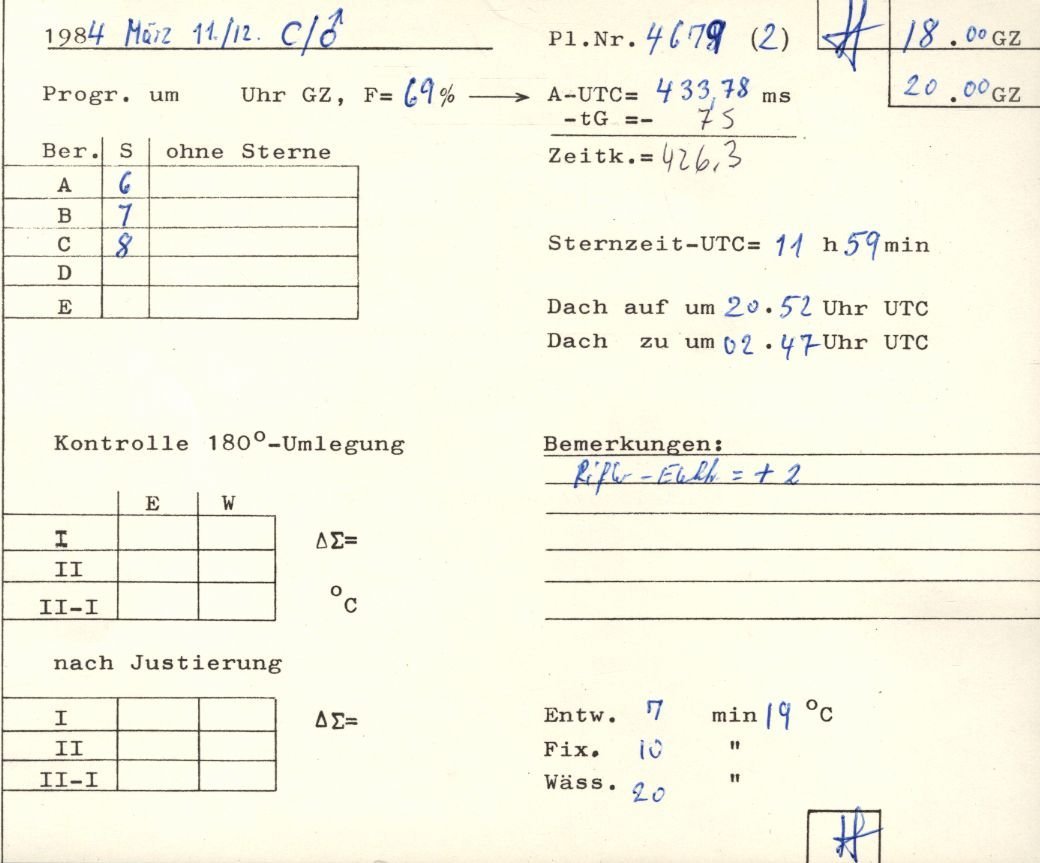 1984 März 11./12. C/♂ Pl.Nr. 4679 (2) 18.00 GZ
Progr. um Uhr GZ, F= 69% → A-UTC= 433,78 ms 20.00 GZ
-tG =- 75
Ber. S ohne Sterne Zeitk.= 426,3
A 6
B 7
C 8 Sternzeit-UTC= 11 h 59 min
D
E Dach auf um 20.52 Uhr UTC
Dach zu um 02.47 Uhr UTC
Kontrolle 180°-Umlegung Bemerkungen:
= + 2
E W
I ΔΣ=
II
II-I °C
nach Justierung
I ΔΣ= Entw. 7 min 19 °C
II Fix. 10 "
II-I Wäss. 20 "